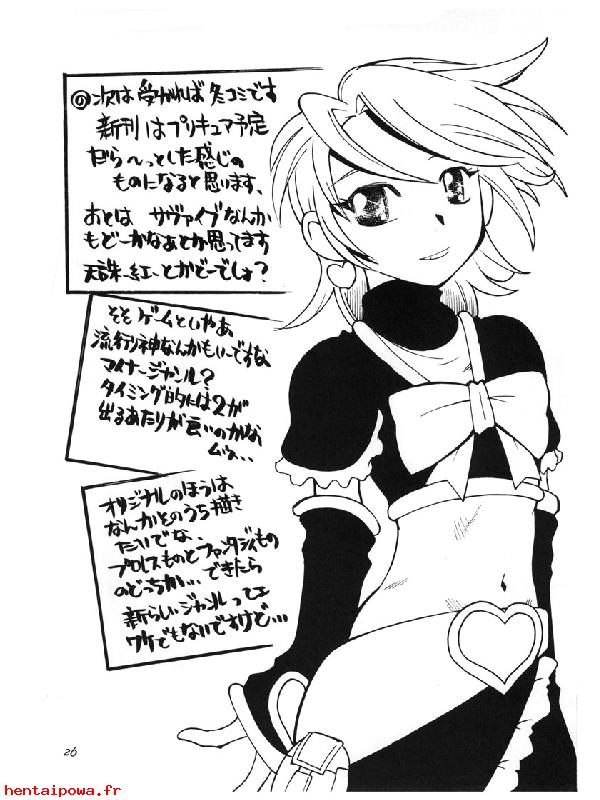 の次は受かれば冬コミです
新刊はプリキュア予定
だら〜っとした感じの
ものになると思います、
あとは サヴァイブなんか
もどーかなあとか思ってます
天誅紅〜とかどーでしょ?
そそ ゲームといやあ
流行り神なんかもいーですな
マイナージャンル?
タイミング的には2が
出るあたりが良いのかな
ムゥ…
オリジナルのほうは
なんかそのうち描き
たいでな、
プロレスものとファンタジィもの
のどっちか… できたら
新らしいジャンルってェ
ワケでもないですけど…
26
hentaipowa.fr